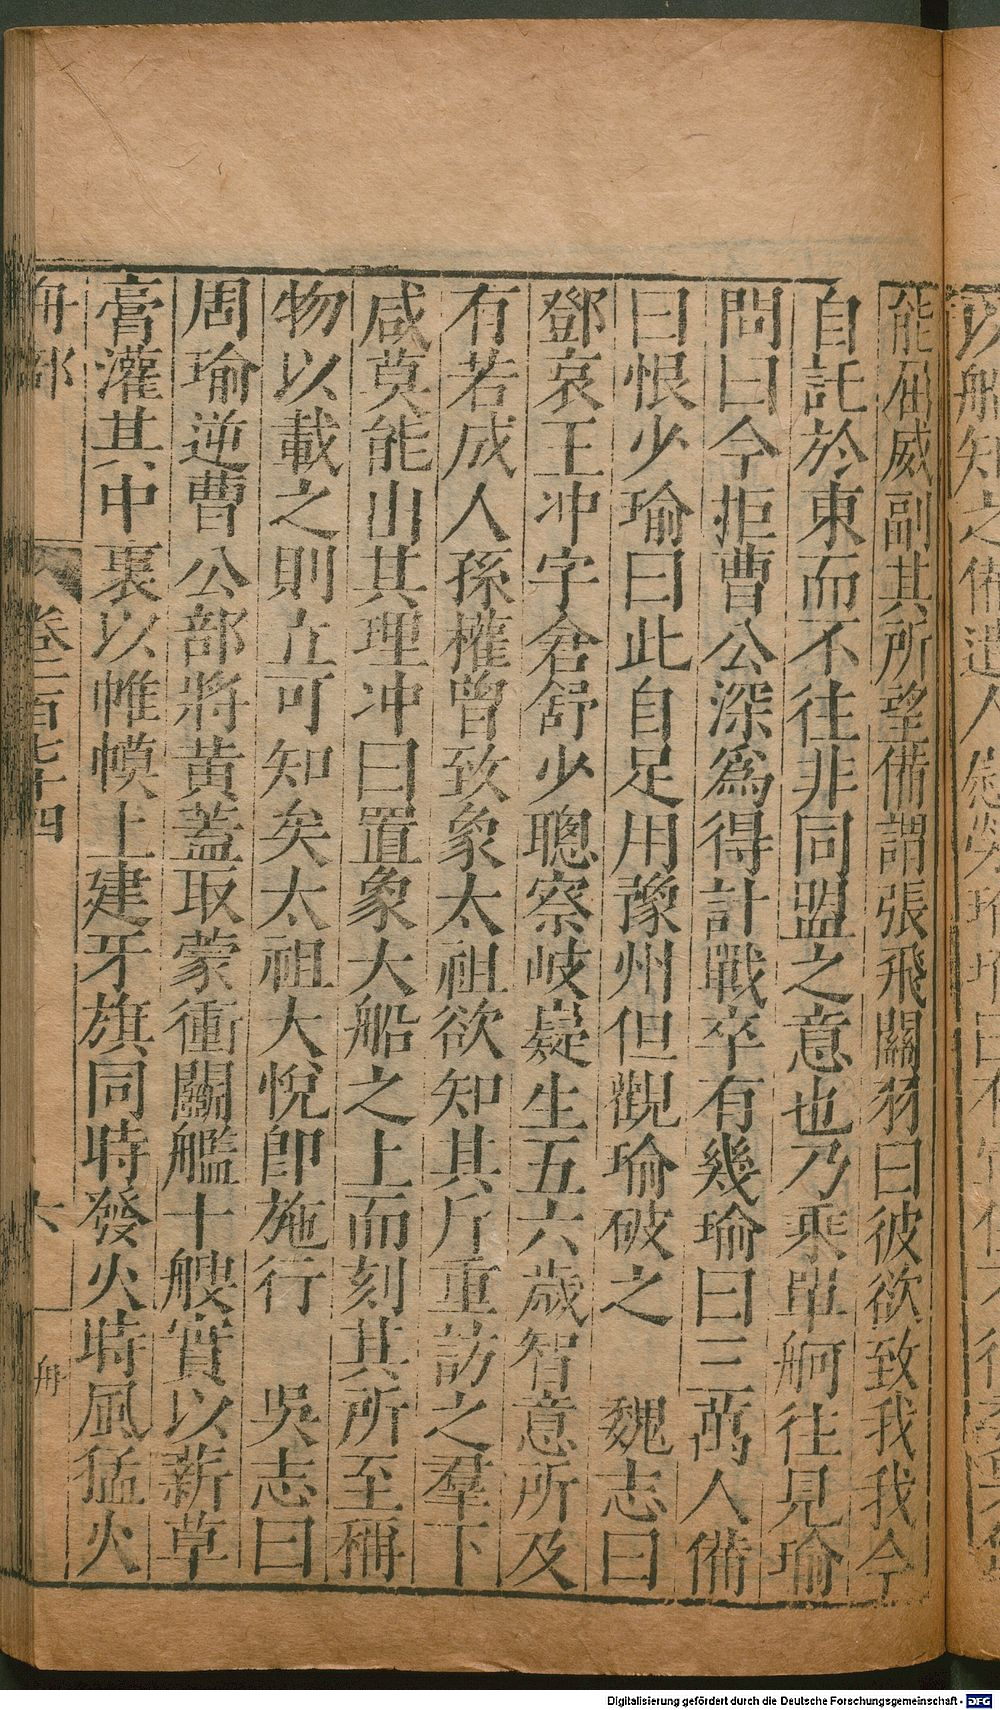 能屈威副其所望備謂張飛關羽曰彼欲致我我今
自託於東而不往非同盟之意也乃乘單舸往見瑜
問曰今拒曹公深為得計戰卒有幾瑜曰三萬人備
曰恨少瑜曰此自足用豫州但觀瑜破之　魏志曰
鄧哀王冲字倉舒少聰察岐嶷生五六歲智意所及
有若成人孫權曾致象太祖欲知其斤重訪之羣下
咸莫能出其理冲曰置象大船之上而刻其所至稱
物以載之則立可知矣太祖大悅即施行　吳志曰
周瑜逆曹公部將黃蓋取蒙衝鬭艦十艘實以薪草
膏灌其中裹以帷幙上建牙旗同時發火時風猛火
舟部　卷一百七十四　六　舟
Digitalisierung gefördert durch die Deutsche Forschungsgemeinschaft - DFG